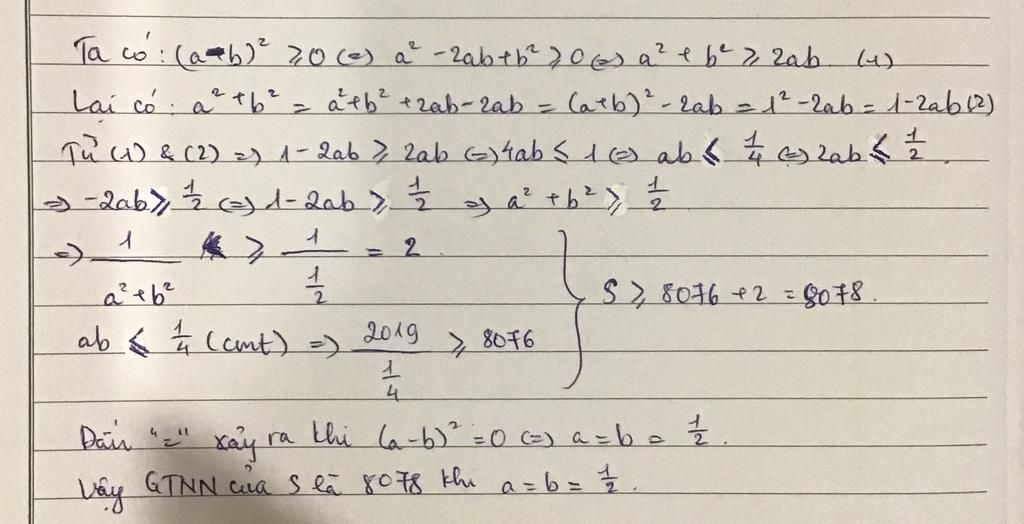 Ta có: (a-b)² ≥ 0 (=) a² - 2ab + b² ≥ 0 (=) a² + b² ≥ 2ab (1)
Lại có: a² + b² = a² + b² + 2ab - 2ab = (a+b)² - 2ab = 1² - 2ab = 1 - 2ab (2)
Từ (1) & (2) => 1 - 2ab ≥ 2ab (=) 4ab ≤ 1 (=) ab ≤ 1/4 (=) 2ab ≤ 1/2.
=> -2ab ≥ 1/2 (=) 1 - 2ab ≥ 1/2 => a² + b² ≥ 1/2
=> 1/(a² + b²) ≥ 1/(1/2) = 2
ab ≤ 1/4 (cmt) => 2019/(1/4) ≥ 8076
} S ≥ 8076 + 2 = 8078.
Dấu "=" xảy ra khi (a-b)² = 0 (=) a = b = 1/2.
Vậy GTNN của S là 8078 khi a = b = 1/2.